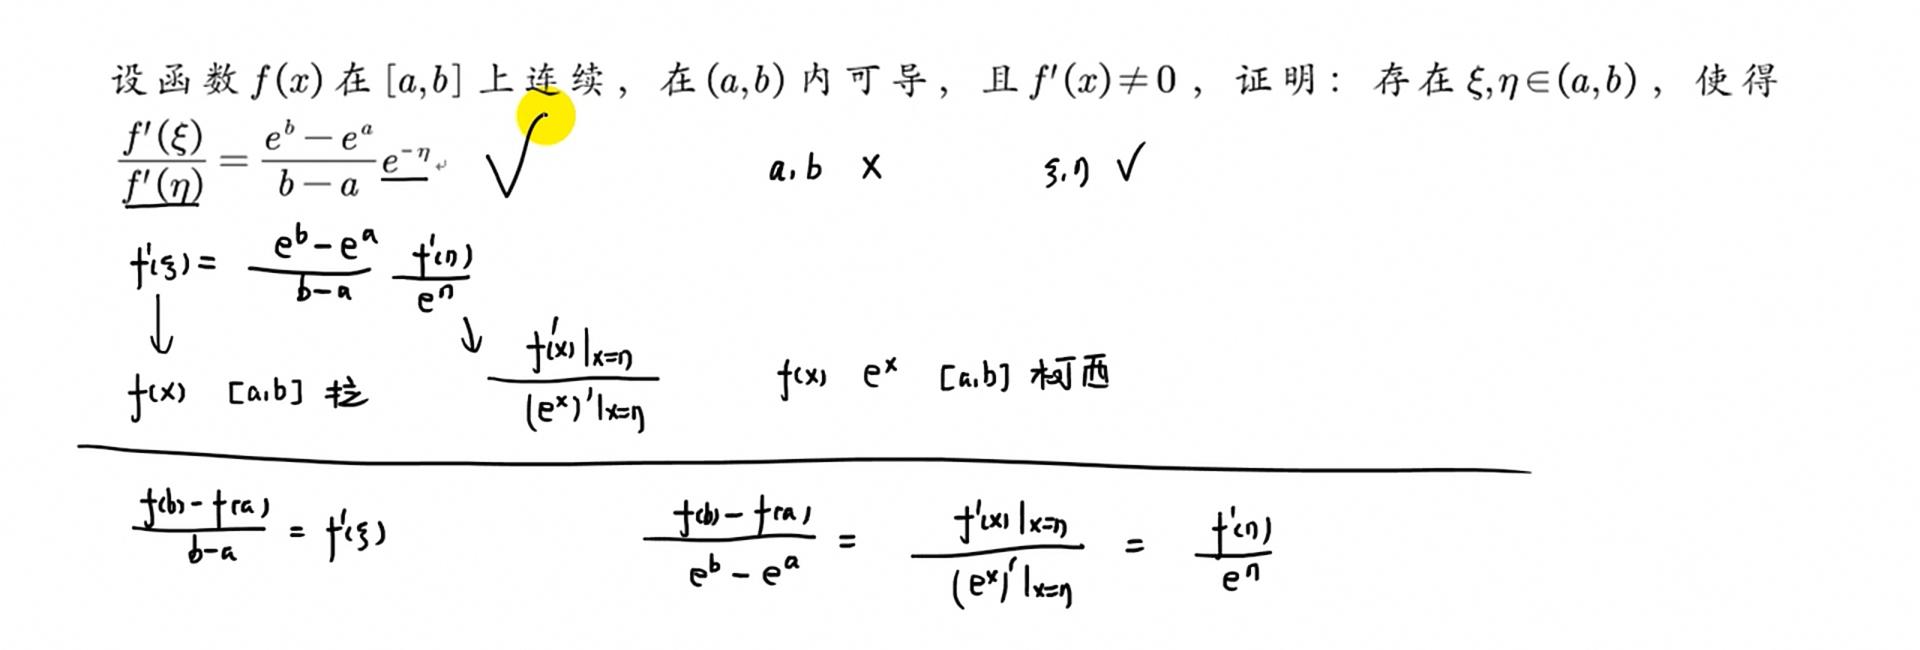 设函数 f(x) 在 [a,b] 上连续，在 (a,b) 内可导，且 f′(x)≠0，证明：存在 ξ,η∈(a,b)，使得
f′(ξ)/f′(η) = (e^b − e^a)/(b − a) e^{−η} √ a,b × ξ,η √
f′(ξ) = (e^b − e^a)/(b − a) f′(η)/e^η
↓ ↘
f(x) [a,b] 拉 f′(x)|x=η / (e^x)′|x=η f(x) e^x [a,b] 柯西
(f(b) − f(a))/(b − a) = f′(ξ) (f(b) − f(a))/(e^b − e^a) = f′(x)|x=η / (e^x)′|x=η = f′(η)/e^η